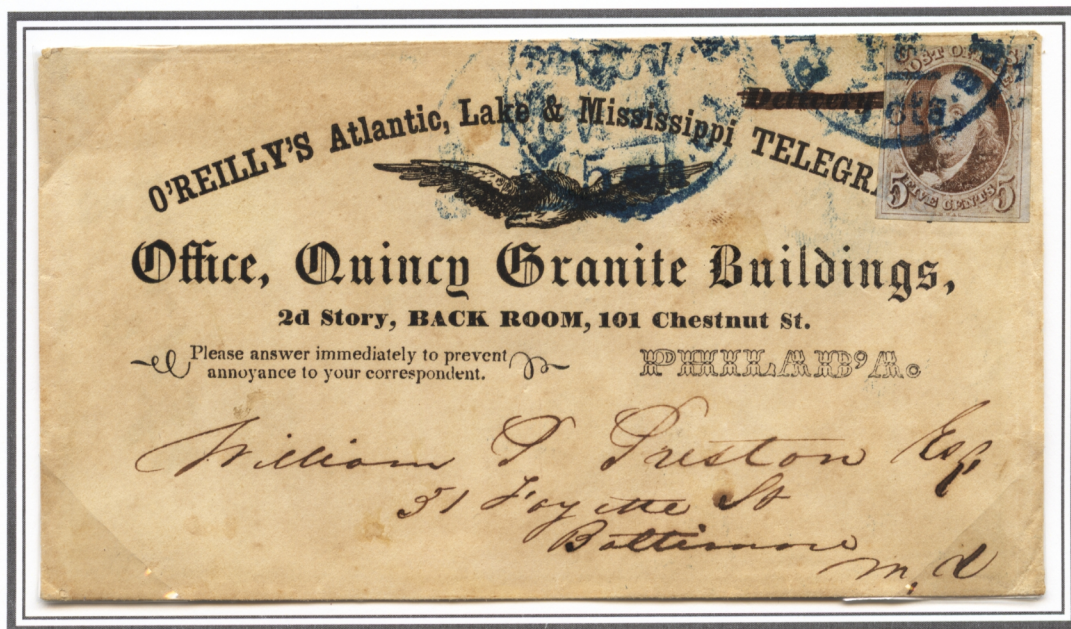 O'REILLY'S Atlantic, Lake & Mississippi TELEGR
Delivery
5 cts
cts.
POST OFFICE
5 FIVE CENTS 5
Office, Quincy Granite Buildings,
2d Story, BACK ROOM, 101 Chestnut St.
Please answer immediately to prevent
annoyance to your correspondent.
PHILAD'A.
William P Preston Esq
51 Fayette St
Baltimore
M, d